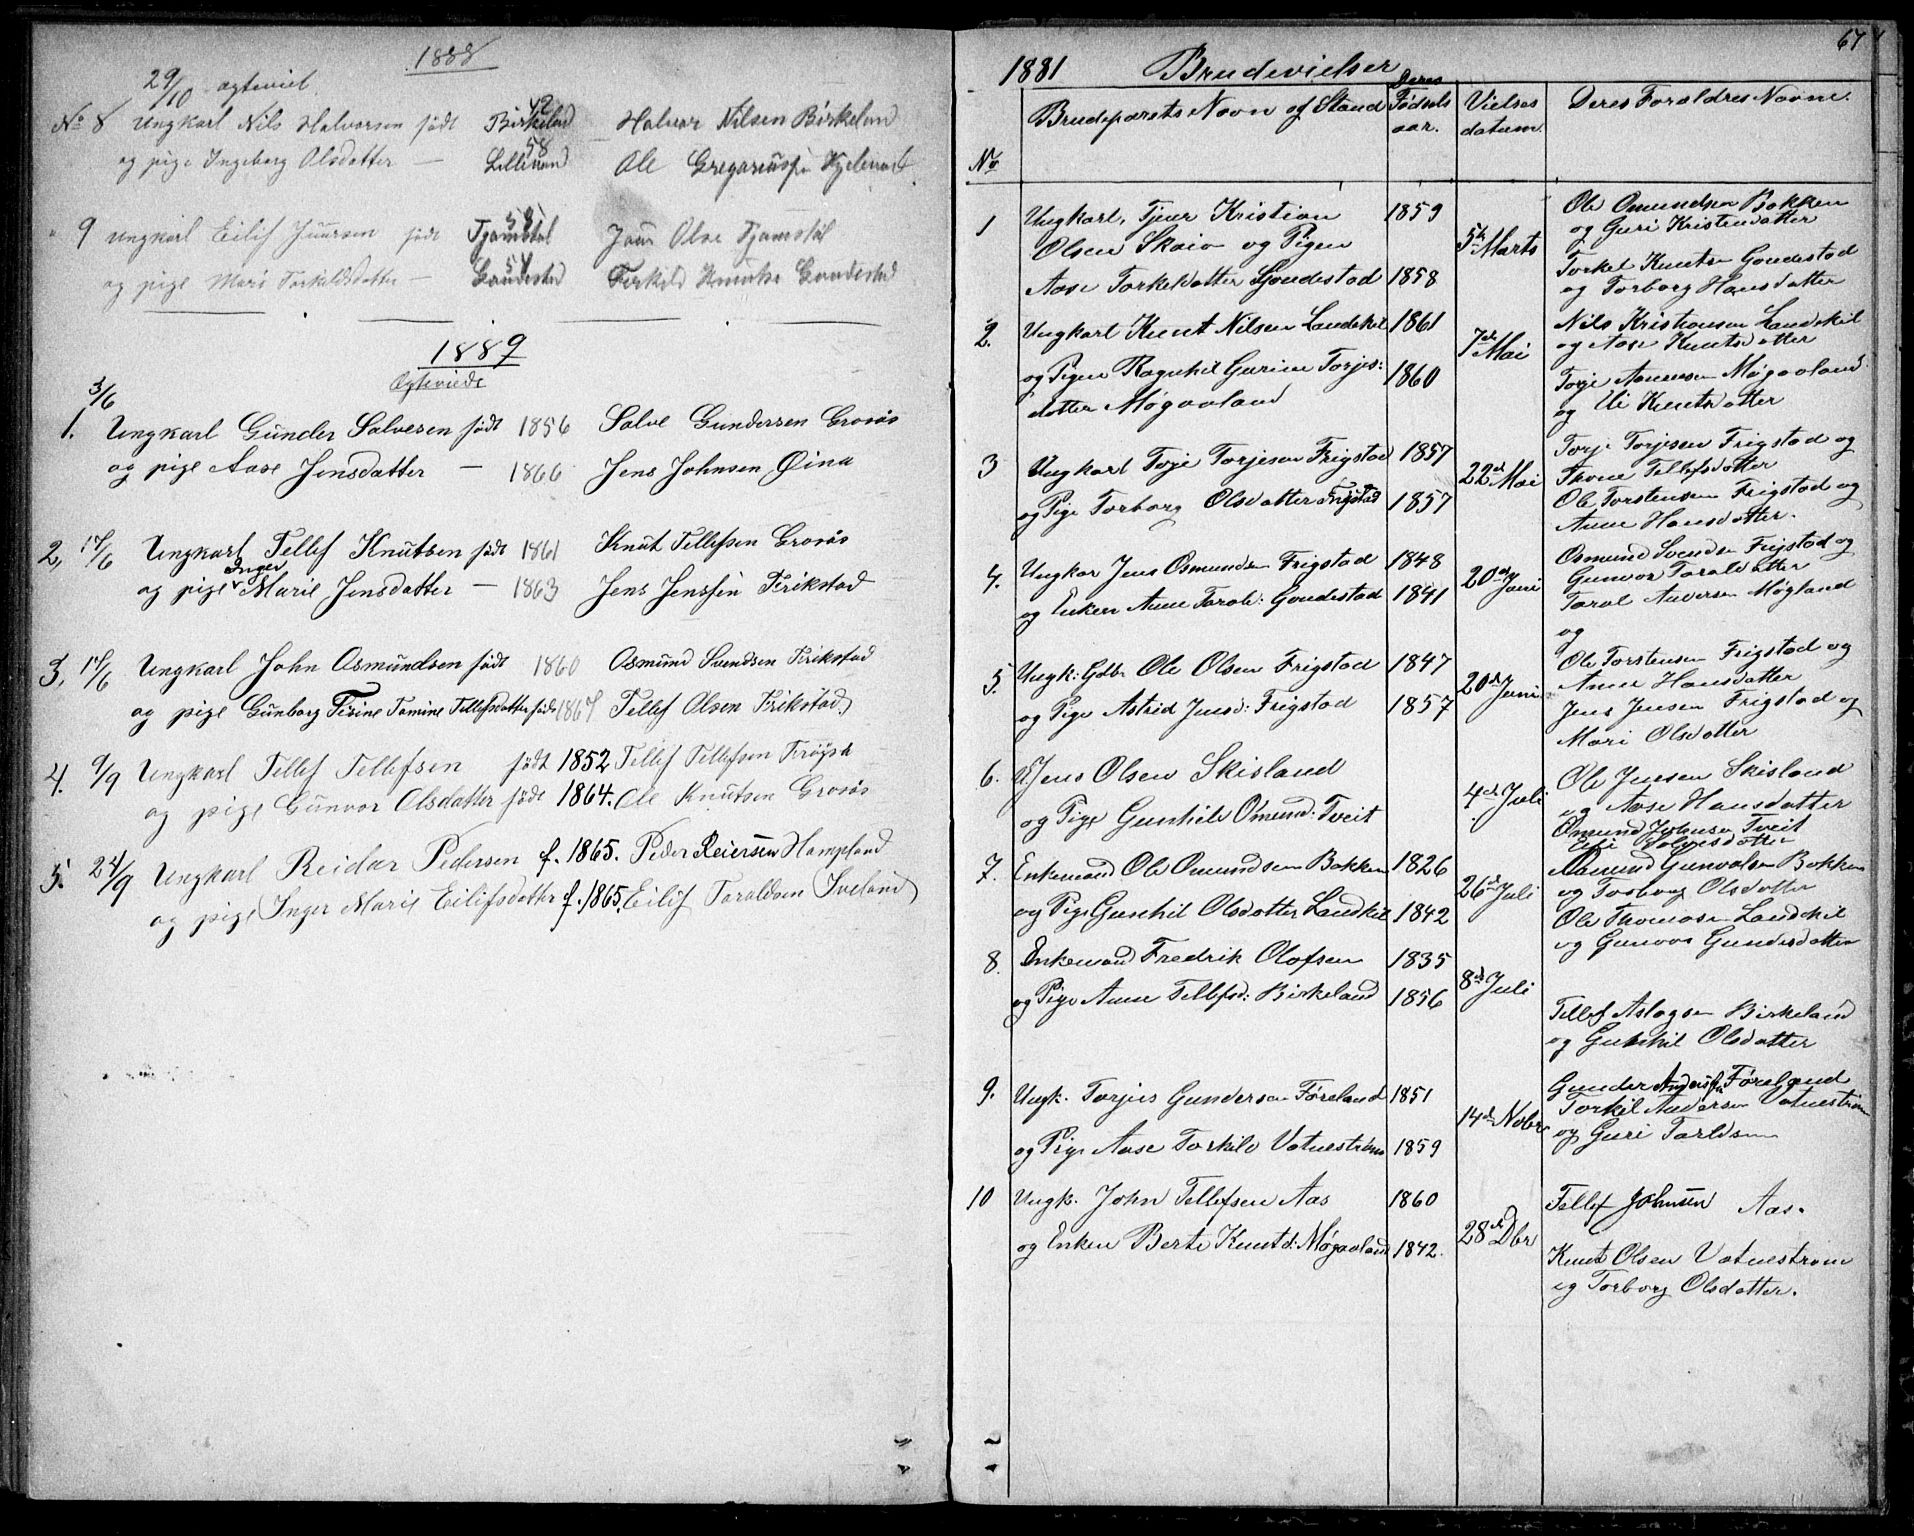 1888
29/10 ægteviet
No 8 Ungkarl Nils Halvorsen født Birkeland 42 Halvor Nilsen Birkeland
og pige Ingeborg Olsdatter — Lillesand 58 Ole
" 9 Ungkarl Eilif født 58 Olsen
og pige Mari Torkildsdatter — 54 Torkild Knutsen
1889
Ægteviede
3/6
1. Ungkarl Gunder Salvesen født 1856 Salve Gundersen Grosås
og pige Aase Jensdatter — 1866 Jens Johnsen Øina
2, 17/6 Ungkarl Tellef Knutsen født 1861 Knut Tellefsen Grosås
og pige Inger Marie Jensdatter — 1863 Jens Jenssen Frikstad
3, 17/6 Ungkarl John Osmundsen født 1860 Osmund Svendsen Frikstad
og pige Gunborg Tomine Tellefsdatter født 1867 Tellef Olsen Frikstad
4. 9/9 Ungkarl Tellef Tellefsen født 1852 Tellef Tellefsen
og pige Gunvor Olsdatter født 1864. Ole Knutsen Grosås
5. 24/9 Ungkarl Reidar Pedersen f. 1865. Peder Reiersen
og pige Inger Marie Eilifsdatter f. 1865. Eilif Taraldsen Iveland
67
1881 Brudevielser
No Brudeparets Navn og Stand Deres Fødsels aar. Vielses datum. Deres Foreldres Navne.
1 Ungkarl, Tjeur Kristian 1859 5te Marts Ole Omundsen Bakken
Olsen Skaio og Pigen og Guri Kristensdatter
Aase Torkeldatter Gondestad 1858 Torkel Knutsen Gondestad
og Torborg Hansdatter
2. Ungkarl Knut Nilsen Landskil 1861 7de Mai Nils Kristiansen Landskil
og Aase Knutsdatter
og Pigen Ragnhil Gurine Torjes: 1860 Torje Aanensen Møgaaland
datter Møgaaland og Knutsdatter
3 Ungkarl Torje Torjesen Frigstad 1857 22de Mai Torje Torjesen Frigstad og
Thone Tellefsdatter
og Pige Torborg Olsdatter Frigstad 1857 Ole Torstensen Frigstad og
Anne Hansdatter.
4. Ungkar Jens Osmundsen Frigstad 1848 20de Juni Osmund Svendsen Frigstad og
Gunvor Taraldatter
og Enken Anne Tarald: Gondestad 1841 Taral Andersen Møgland
og
5. Ungk: Gdbr Ole Olsen Frigstad 1847 20de Juni Ole Torstensen Frigstad og
Anne Hansdatter
og Pige Astrid Jensd: Frigstad 1857 Jens Jensen Frigstad og
Mari Olsdatter
6. U Jens Olsen Skisland 4de Juli Ole Jensen Skisland
og Aase Hansdatter
og Pige Gunhild Omund: Tveit Omund Johnsen Tveit
7. Enkemand Ole Omundsen Bakken 1826 26de Juli Omund Gunvalsen Bakken
og Torborg Olsdatter
og Pige Gunhil Olsdatter Landskil 1842 Ole Thomasen Landskil
og Gunvor Gundersdatter
8. Enkemand Fredrik Olofsen 1835 8de Juli
og Pige Anne Tellefsd: Birkeland 1856 Tellef Aslagsen Birkeland
og Gunhil Olsdatter
9. Ungk. Torjus Gundersen Føreland 1851 14de Nobr Gunder Andersen Føreland
Torkil Andersen Vatnestrøm
og Pige Aase Torkild Vatnestrøm 1859 og Guri Tarldsen
10 Ungk. John Tellefsen Aas 1860 28de Dbr Tellef Johnsen Aas.
og Enken Berte Knutd: Møgaaland 1842. Knut Olsen Vatnestrøm
og Torborg Olsdatter.